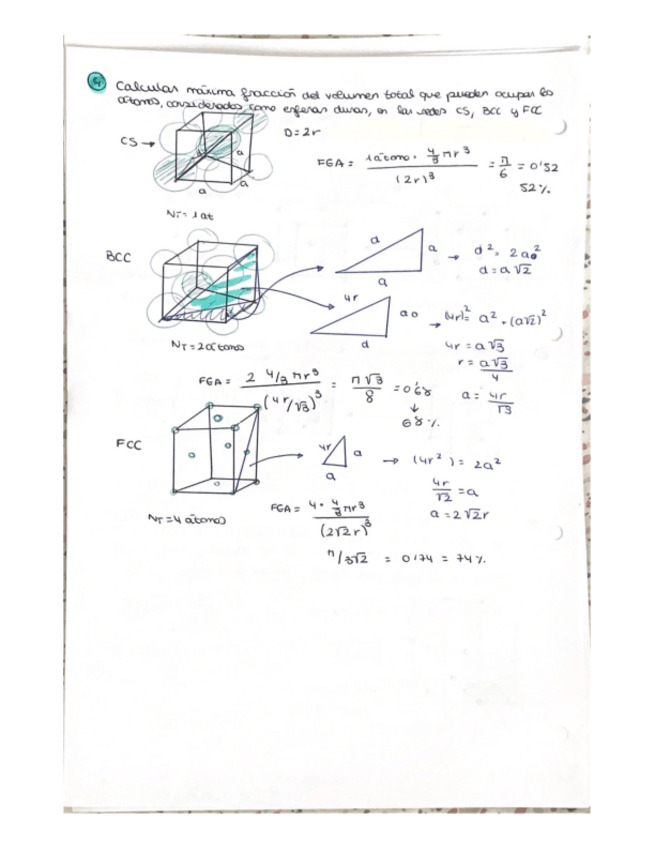 4 Calcular máxima fracción del volumen total que pueden ocupar los
átomos, considerados como esferas duras, en las redes CS, BCC y FCC
CS → D = 2r
a a a
FGA = 1 átomo · 4/3 πr³ / (2r)³ = π/6 = 0'52
52%
NT = 1 at
BCC
d a a → d² = 2a₀²
d = a√2
4r a₀ d → (4r)² = a² + (a√2)²
NT = 2 átomos
4r = a√3
r = a√3 / 4
FGA = 2 4/3 πr³ / (4r/√3)³ = π√3 / 8 = 0'68
↓
68%
a = 4r / √3
FCC
4r a a → (4r²) = 2a²
4r / √2 = a
a = 2√2r
NT = 4 átomos
FGA = 4 · 4/3 πr³ / (2√2r)³
π/3√2 = 0'74 = 74%